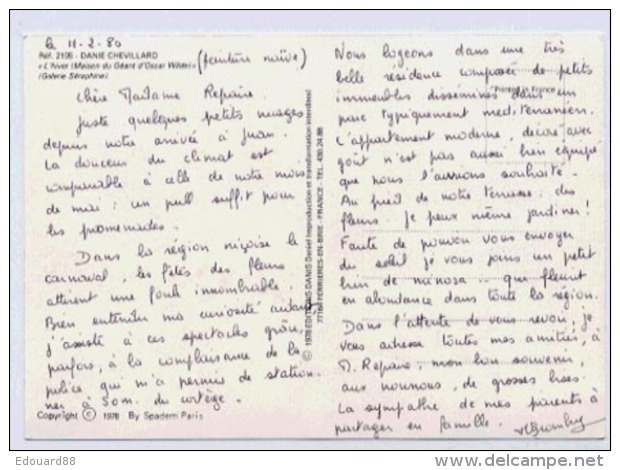 le 11-2-80
Réf. 2105 - DANIE CHEVILLARD
« L'hiver (Maison du Géant d'Oscar Wilde) »
(Galerie Séraphine)
(peinture naïve)
Chère Madame Repaire.
Juste quelques petits nuages
depuis notre arrivée à Juan.
La douceur du climat est
comparable à celle de notre mois
de mai : un pull suffit pour
les promenades.
Dans la région niçoise le
carnaval, les fêtes des fleurs
attirent une foule innombrable.
Bien entendu ma curiosité aidant
j'assiste à ces spectacles grâce,
parfois, à la complaisance de la
police qui m'a permis de station.
ner, à 50m. du cortège.
Copyright © 1978 By Spadem Paris
© 1978 EDITIONS DANIS Daniel (reproduction et transformation interdites)
77164 FERRIERES-EN-BRIE - FRANCE - TEL. 430.24.88
Printed in France
Nous logeons dans une très
belle residence composée de petits
immeubles disséminés dans un
parc typiquement mediterranéen.
L'appartement moderne, décoré avec
goût n'est pas aussi bien équipé
que nous l'aurions souhaité.
Au pied de notre terrasse, des
fleurs. Je peux même jardiner!
Faute de pouvoir vous envoyer
du soleil je vous joins un petit
brin de mimosa .. qui fleurit
en abondance dans toute la région.
Dans l'attente de vous revoir, je
vous adresse toutes mes amitiés, à
M. Repaire, mon bon souvenir,
aux nounous, de grosses bises.
La sympathie de mes parents à
partager en famille.
Edouard88
www.delcampe.net